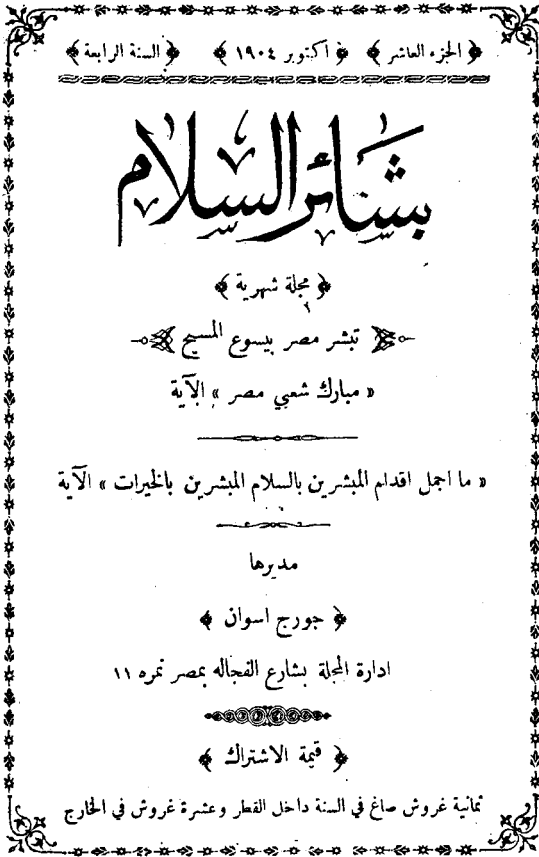 ﴿ الجزء العاشر ﴾ ﴿ اكتوبر ١٩٠٤ ﴾ ﴿ السنة الرابعة ﴾
بشائر السلام
﴿ مجلة شهرية ﴾
تبشر مصر بيسوع المسيح
« مبارك شعبي مصر » الآية
« ما اجمل اقدام المبشرين بالسلام المبشرين بالخيرات » الآية
مديرها
﴿ جورج اسوان ﴾
ادارة المجلة بشارع الفجاله بمصر نمره ١١
﴿ قيمة الاشتراك ﴾
ثمانية غروش صاغ في السنة داخل القطر وعشرة غروش في الخارج